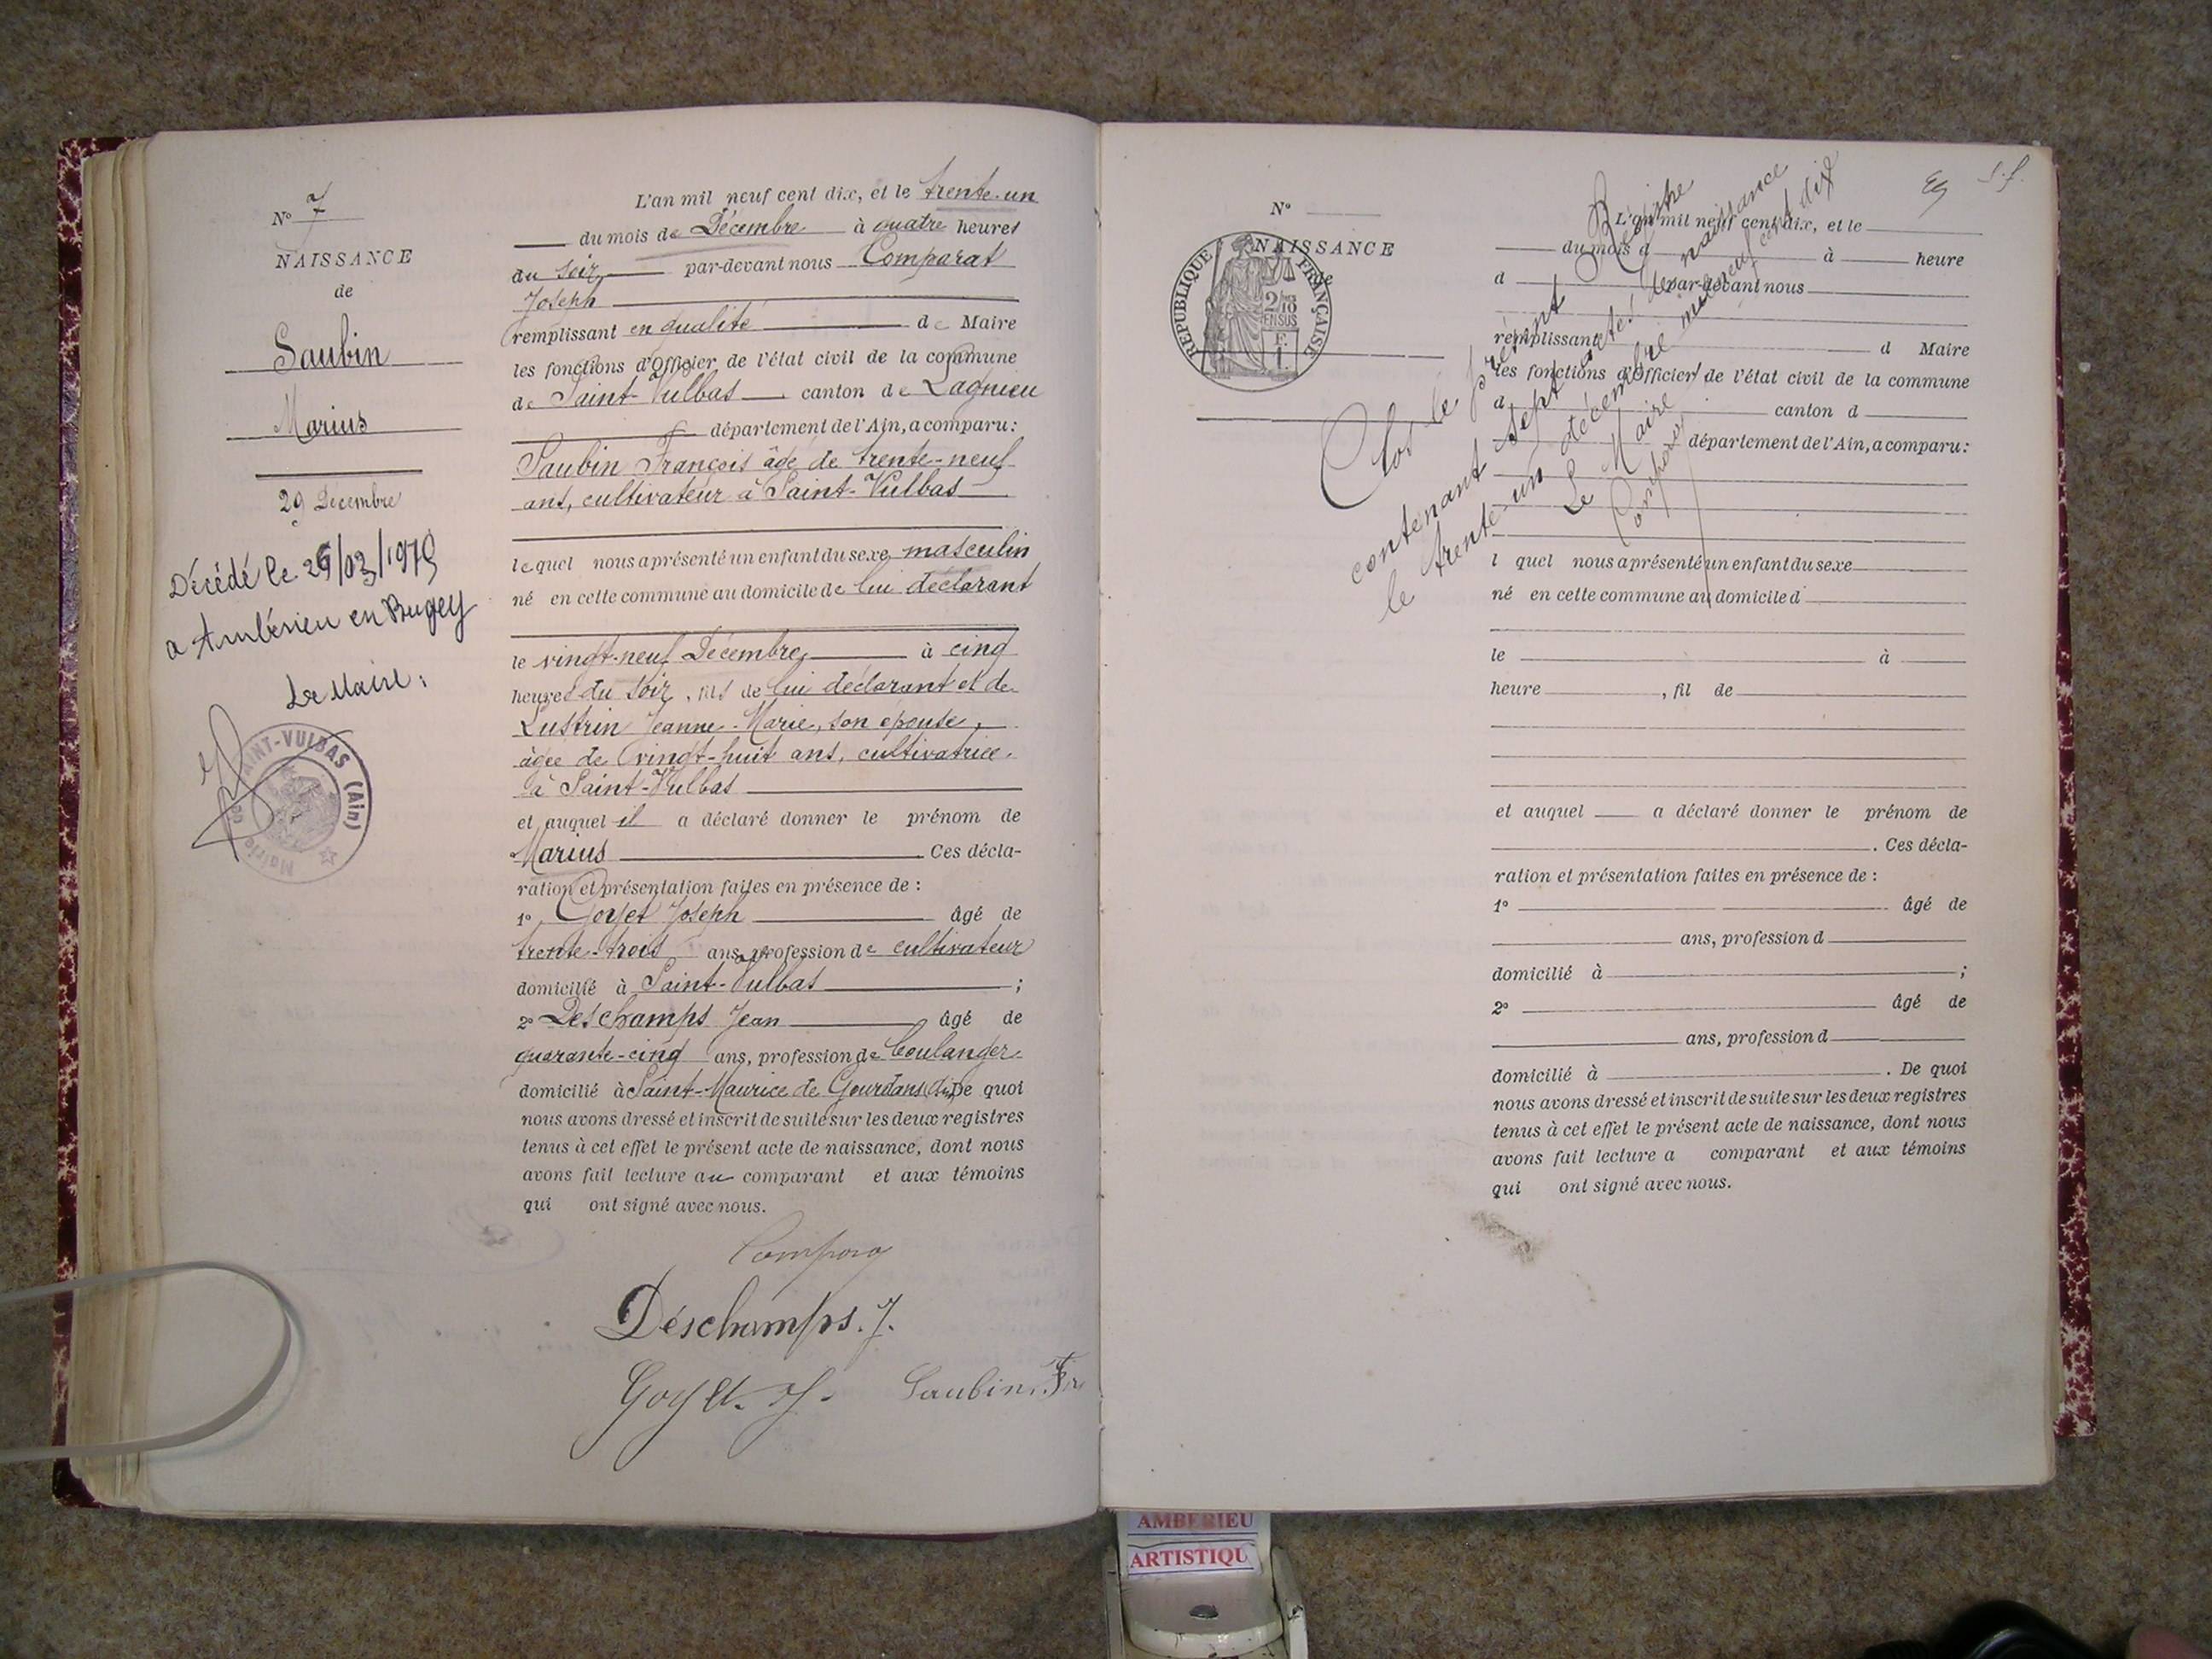 N° 7
NAISSANCE
de
Saubin
Marius
29 Décembre
Décédé le 26/03/1979
a Ambérieu en Bugey
Le Maire,
MAIRIE DE SAINT-VULBAS (Ain)
L'an mil neuf cent dix, et le trente-un
du mois de Décembre à quatre heures
du soir par-devant nous Comparat
Joseph
remplissant en qualité de Maire
les fonctions d'Officier de l'état civil de la commune
de Saint-Vulbas canton de Lagnieu
département de l'Ain, a comparu:
Saubin François âgé de trente-neuf
ans, cultivateur à Saint-Vulbas
lequel nous a présenté un enfant du sexe masculin
né en cette commune au domicile de lui déclarant
le vingt-neuf Décembre à cinq
heures du soir, fils de lui déclarant et de
Lustrin Jeanne-Marie, son épouse,
âgée de vingt-huit ans, cultivatrice
à Saint-Vulbas
et auquel il a déclaré donner le prénom de
Marius. Ces décla-
ration et présentation faites en présence de :
1° Goyet Joseph âgé de
trente-trois ans, profession de cultivateur
domicilié à Saint-Vulbas ;
2° Deschamps Jean âgé de
quarante-cinq ans, profession de boulanger
domicilié à Saint-Maurice de Gourdans De quoi
nous avons dressé et inscrit de suite sur les deux registres
tenus à cet effet le présent acte de naissance, dont nous
avons fait lecture au comparant et aux témoins
qui ont signé avec nous.
Deschamps. J.
Goyet. J. Saubin. Fr
N°
NAISSANCE
de
REPUBLIQUE FRANÇAISE
2/10 EN SUS
L'an mil neuf cent dix, et le
du mois d à heure
d par-devant nous
remplissant d Maire
les fonctions d'Officier de l'état civil de la commune
d canton d
département de l'Ain, a comparu:
Clos le présent Registre
contenant sept actes de naissance
le trente-un décembre mil neuf cent dix
Le Maire
l quel nous a présenté un enfant du sexe
né en cette commune au domicile d
le à
heure , fil de
et auquel a déclaré donner le prénom de
. Ces décla-
ration et présentation faites en présence de :
1° âgé de
ans, profession d
domicilié à ;
2° âgé de
ans, profession d
domicilié à . De quoi
nous avons dressé et inscrit de suite sur les deux registres
tenus à cet effet le présent acte de naissance, dont nous
avons fait lecture a comparant et aux témoins
qui ont signé avec nous.
AMBERIEU
ARTISTIQU